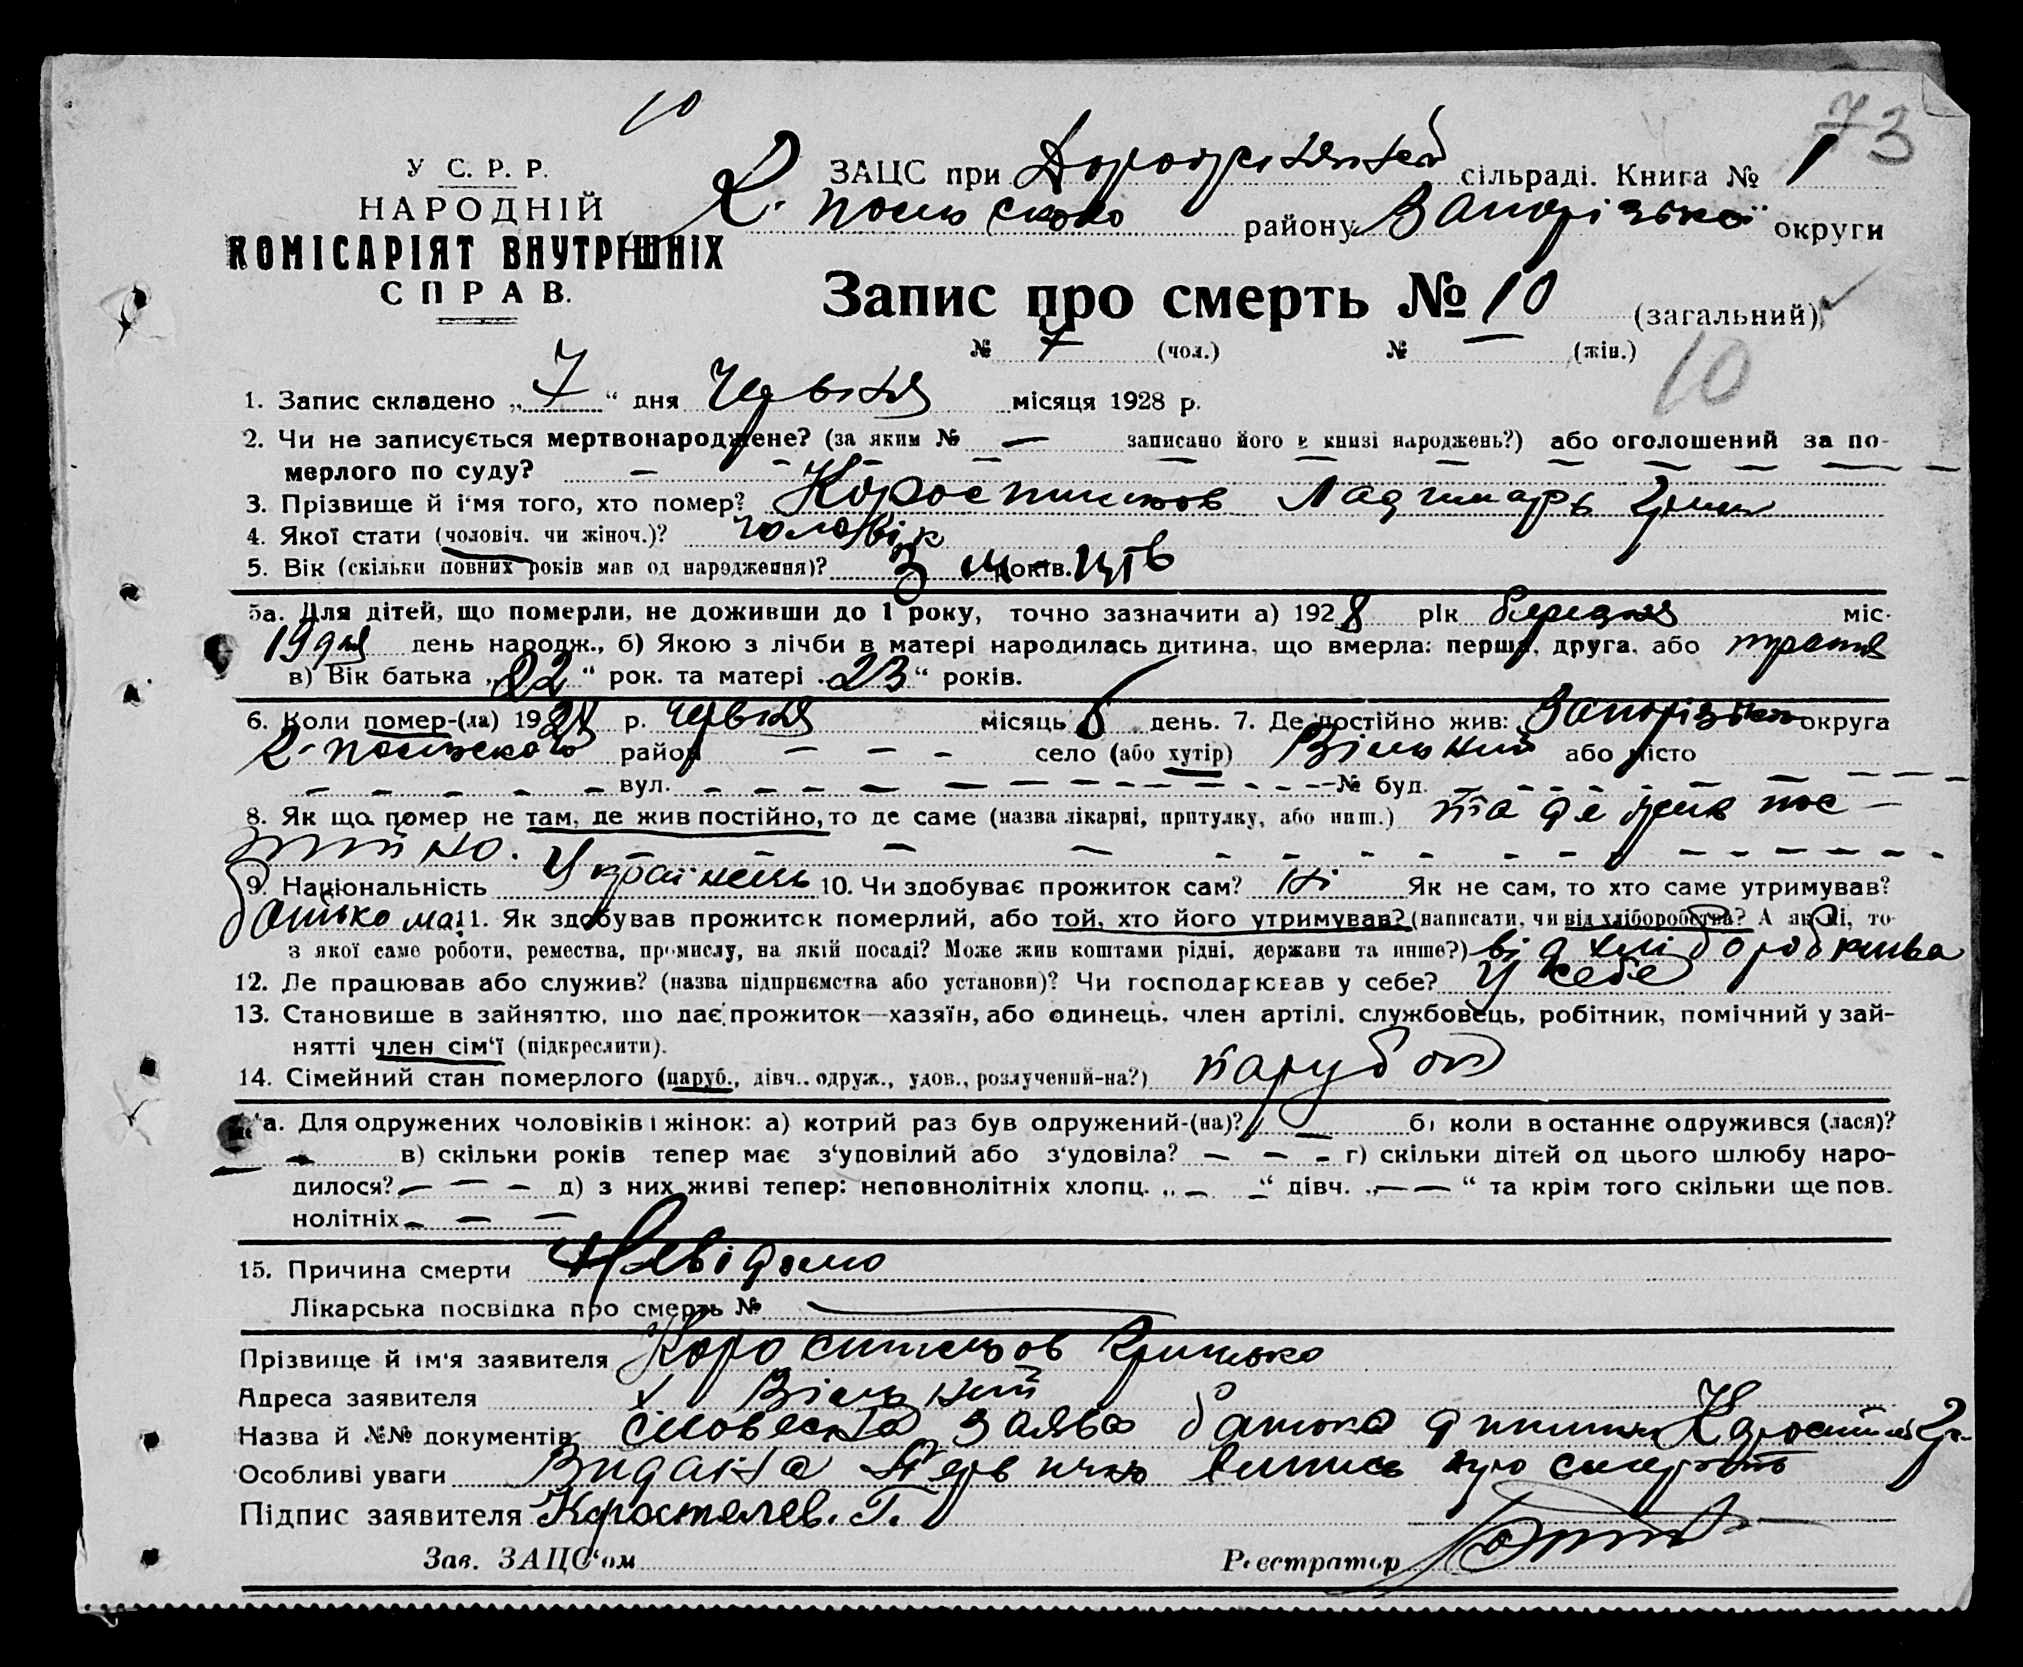 10
73
У С. Р. Р.
НАРОДНІЙ
КОМІСАРІЯТ ВНУТРІШНІХ
СПРАВ.
ЗАЦС при сільраді. Книга № 1
району Запорізької округи
Запис про смерть № 10 (загальний)
№ 7 (чол.) № — (жін.)
10
1. Запис складено „ 7 “ дня Червня місяця 1928 р.
2. Чи не записується мертвонароджене? (за яким № — записано його в книзі народжень?) або оголошений за по-
мерлого по суду? — — — — — — — — — —
3. Прізвище й і'мя того, хто помер?
4. Якої стати (чоловіч. чи жіноч.)? чоловік
5. Вік (скільки повних років мав од народження)? 3 м років. ців
5а. Для дітей, що померли, не доживши до 1 року, точно зазначити а) 1928 рік березня міс.
19 дня день народж., б) Якою з лічби в матері народилась дитина, що вмерла: перша, друга, або третя
в) Вік батька „22“ рок. та матері „23“ років.
6. Коли помер-(ла) 1928 р. червня місяць 6 день. 7. Де постійно жив: Запорізька округа
район — — — село (або хутір) Вільний або місто
— — — — — вул. — — — — — — — — — — № буд. — — — — — —
8. Як що помер не там, де жив постійно, то де саме (назва лікарні, притулку, або инш.) та де жив пос-
тійно. — — — — — — — — — —
9. Національність Українець 10. Чи здобуває прожиток сам? ні Як не сам, то хто саме утримував?
батько ма 11. Як здобував прожиток померлий, або той, хто його утримував? (написати, чи від хліборобства? А як ні, то
з якої саме роботи, ремества, промислу, на якій посаді? Може жив коштами рідні, держави та инше?) від хліборобства
12. Де працював або служив? (назва підприємства або установи)? Чи господарював у себе? У себе
13. Становище в зайняттю, що дає прожиток—хазяїн, або одинець, член артілі, службовець, робітник, помічний у зай-
нятті член сім'ї (підкреслити).
14. Сімейний стан померлого (паруб., дівч., одруж., удов., розлучений-на?) парубок
14а. Для одружених чоловіків і жінок: а) котрий раз був одружений-(на)? — б) коли в останнє одружився (лася)?
— в) скільки років тепер має з'удовілий або з'удовіла? — — — г) скільки дітей од цього шлюбу наро-
дилося? — — — д) з них живі тепер: неповнолітніх хлопц. „ — — “ дівч. „ — — “ та крім того скільки ще пов.
нолітніх — — —
15. Причина смерти Невідомо
Лікарська посвідка про смерть № —
Прізвище й ім'я заявителя Гришько
Адреса заявителя х Вільний
Назва й №№ документів словесна заява батька дитини
Особливі уваги Видана первична випись про смерть
Підпис заявителя Г.
Зав. ЗАЦС'ом Реєстратор